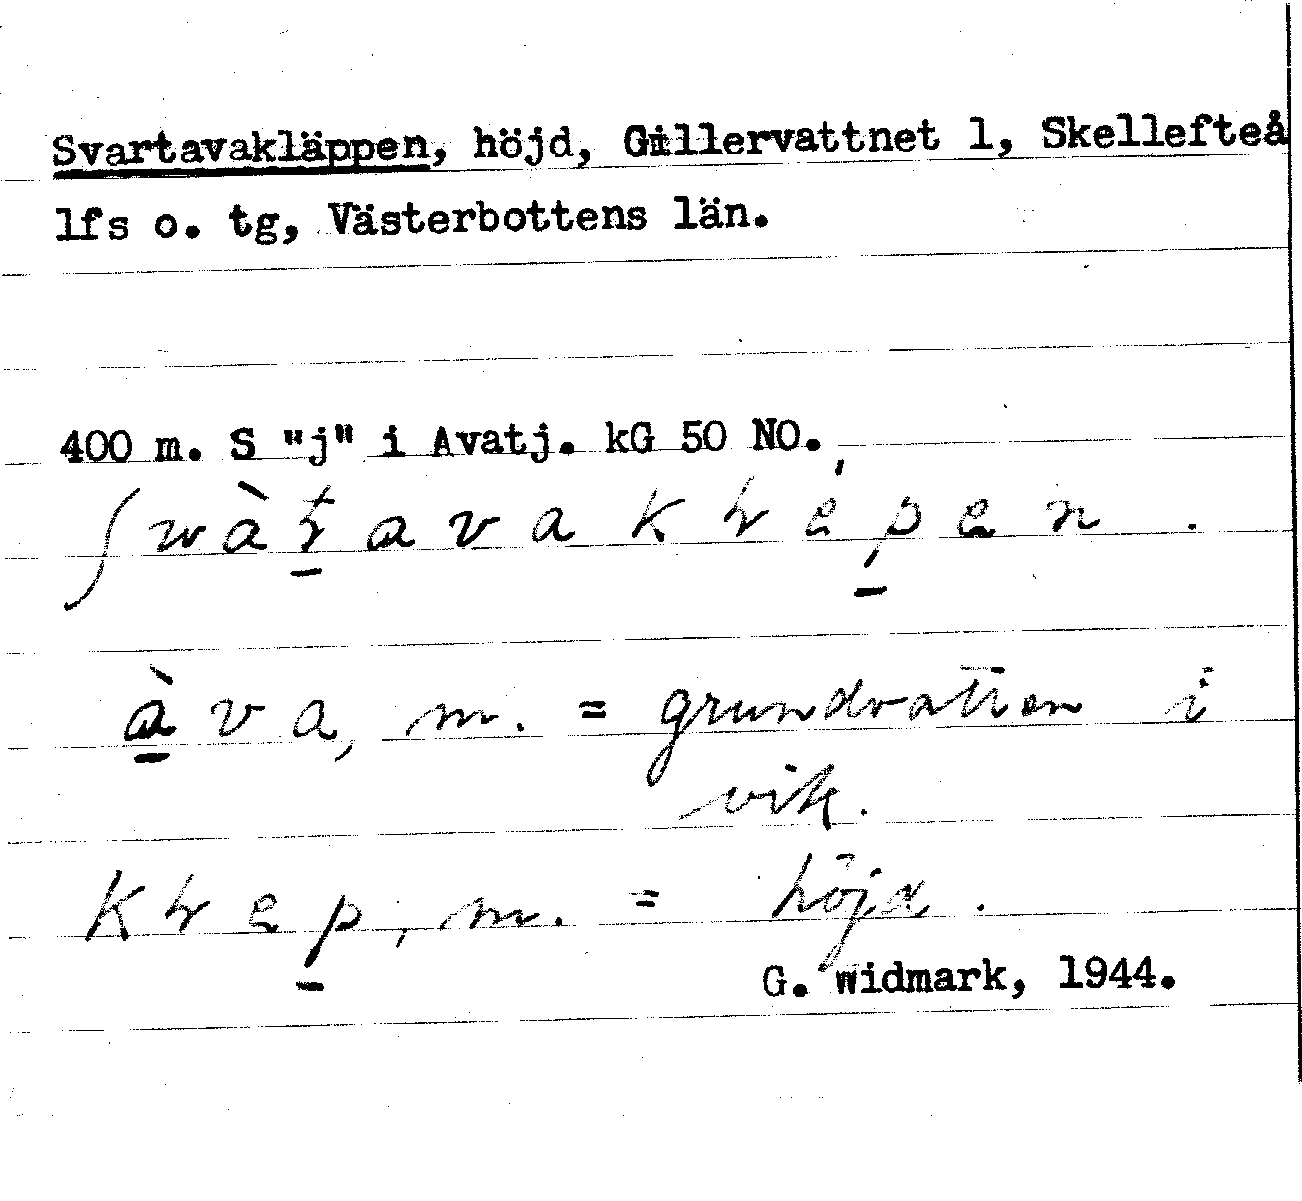 Svartavakläppen, höjd, Gillervattnet 1, Skellefteå
lfs o. tg, Västerbottens län.
400 m. S "j" i Avatj. kG 50 NO.
àva, m. = grundvatten i
vik.
m. = höjd.
G. Widmark, 1944.